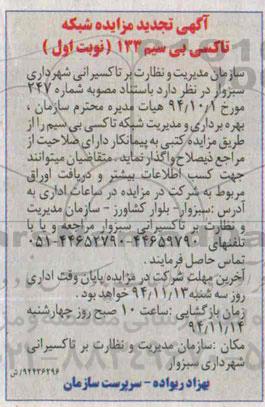 آگهی تجدید مزایده شبکه
تاکسی بی سیم ۱۳۳ ( نوبت اول )
سازمان مدیریت و نظارت بر تاکسیرانی شهرداری
سبزوار در نظر دارد باستناد مصوبه شماره ۲۴۷
مورخ ۹۴/۱۰/۱ هیات مدیره محترم سازمان ،
بهره برداری و مدیریت شبکه تاکسی بی سیم را از
طریق مزایده کتبی به پیمانکار دارای صلاحیت از
مراجع ذیصلاح واگذار نماید . متقاضیان میتوانند
جهت کسب اطلاعات بیشتر و دریافت اوراق
مربوط به شرکت در مزایده در ساعات اداری به
آدرس :سبزوار- بلوار کشاورز - سازمان مدیریت
و نظارت بر تاکسیرانی سبزوار مراجعه و یا با
تلفنهای ۴۴۶۵۹۷۹۰-۴۴۶۵۲۷۹۰-۰۵۱
تماس حاصل فرمایند .
آخرین مهلت شرکت در مزایده پایان وقت اداری
روز سه شنبه ۹۴/۱۱/۱۳ خواهد بود .
زمان بازگشایی :ساعت ۱۰ صبح روز چهارشنبه
۹۴/۱۱/۱۴
مکان :سازمان مدیریت و نظارت بر تاکسیرانی
شهرداری سبزوار
۹۲۴۳۶۲۹۶/ ش
بهزاد ریواده - سرپرست سازمان